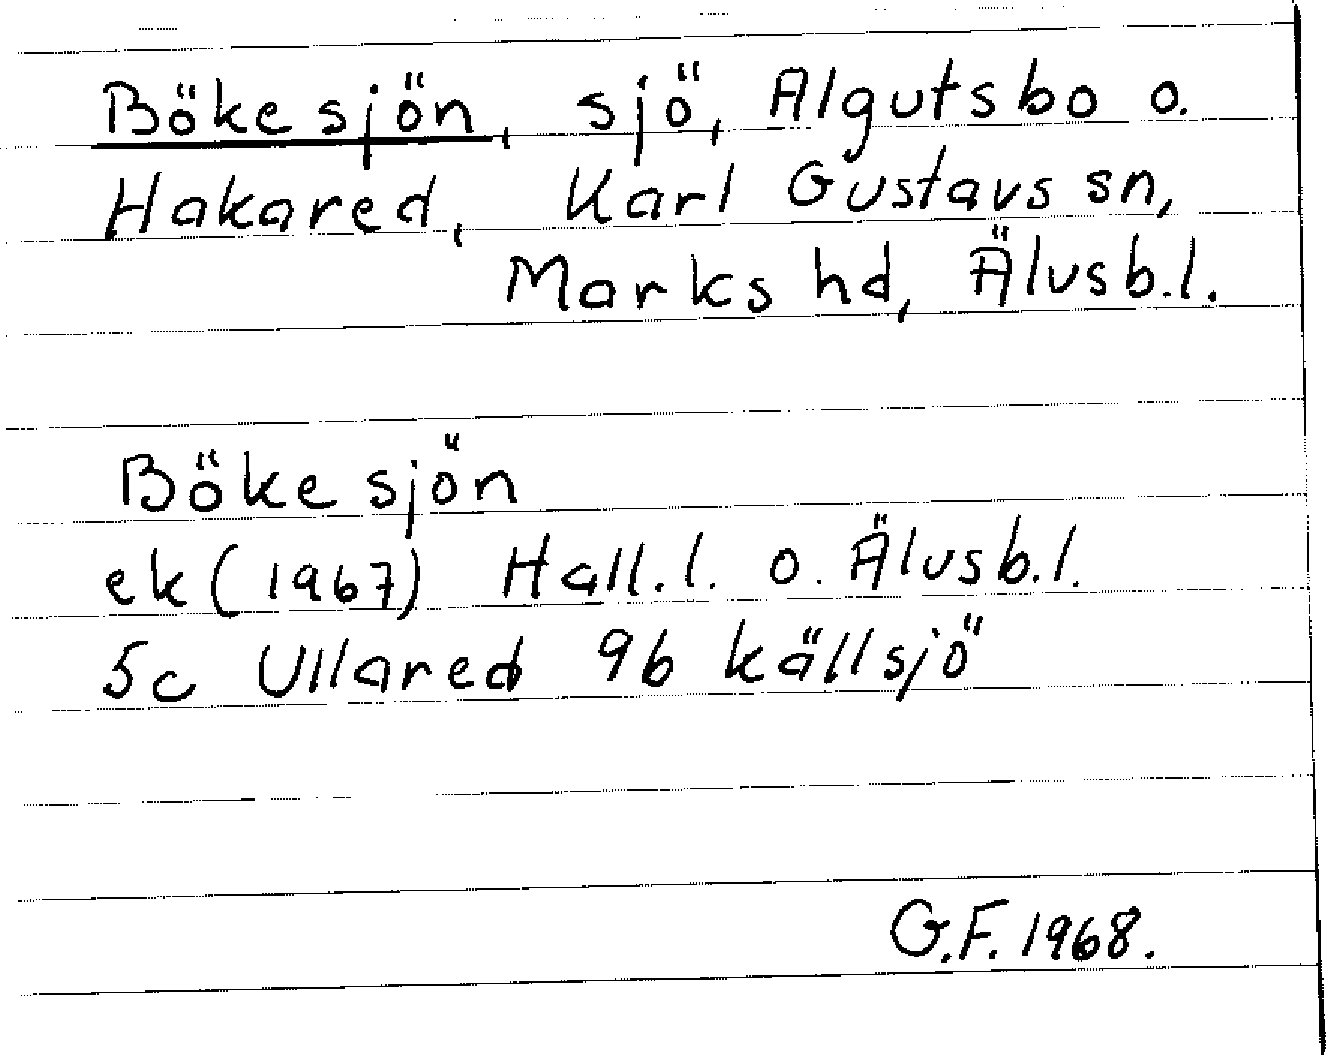 Bökesjön, sjö, Algutsbo o.
Hakared, Karl Gustavs sn,
Marks hd, Älvsb.l.
Bökesjön
ek (1967) Hall.l. o. Älvsb.l.
5c Ullared 9b källsjö
G.F. 1968.